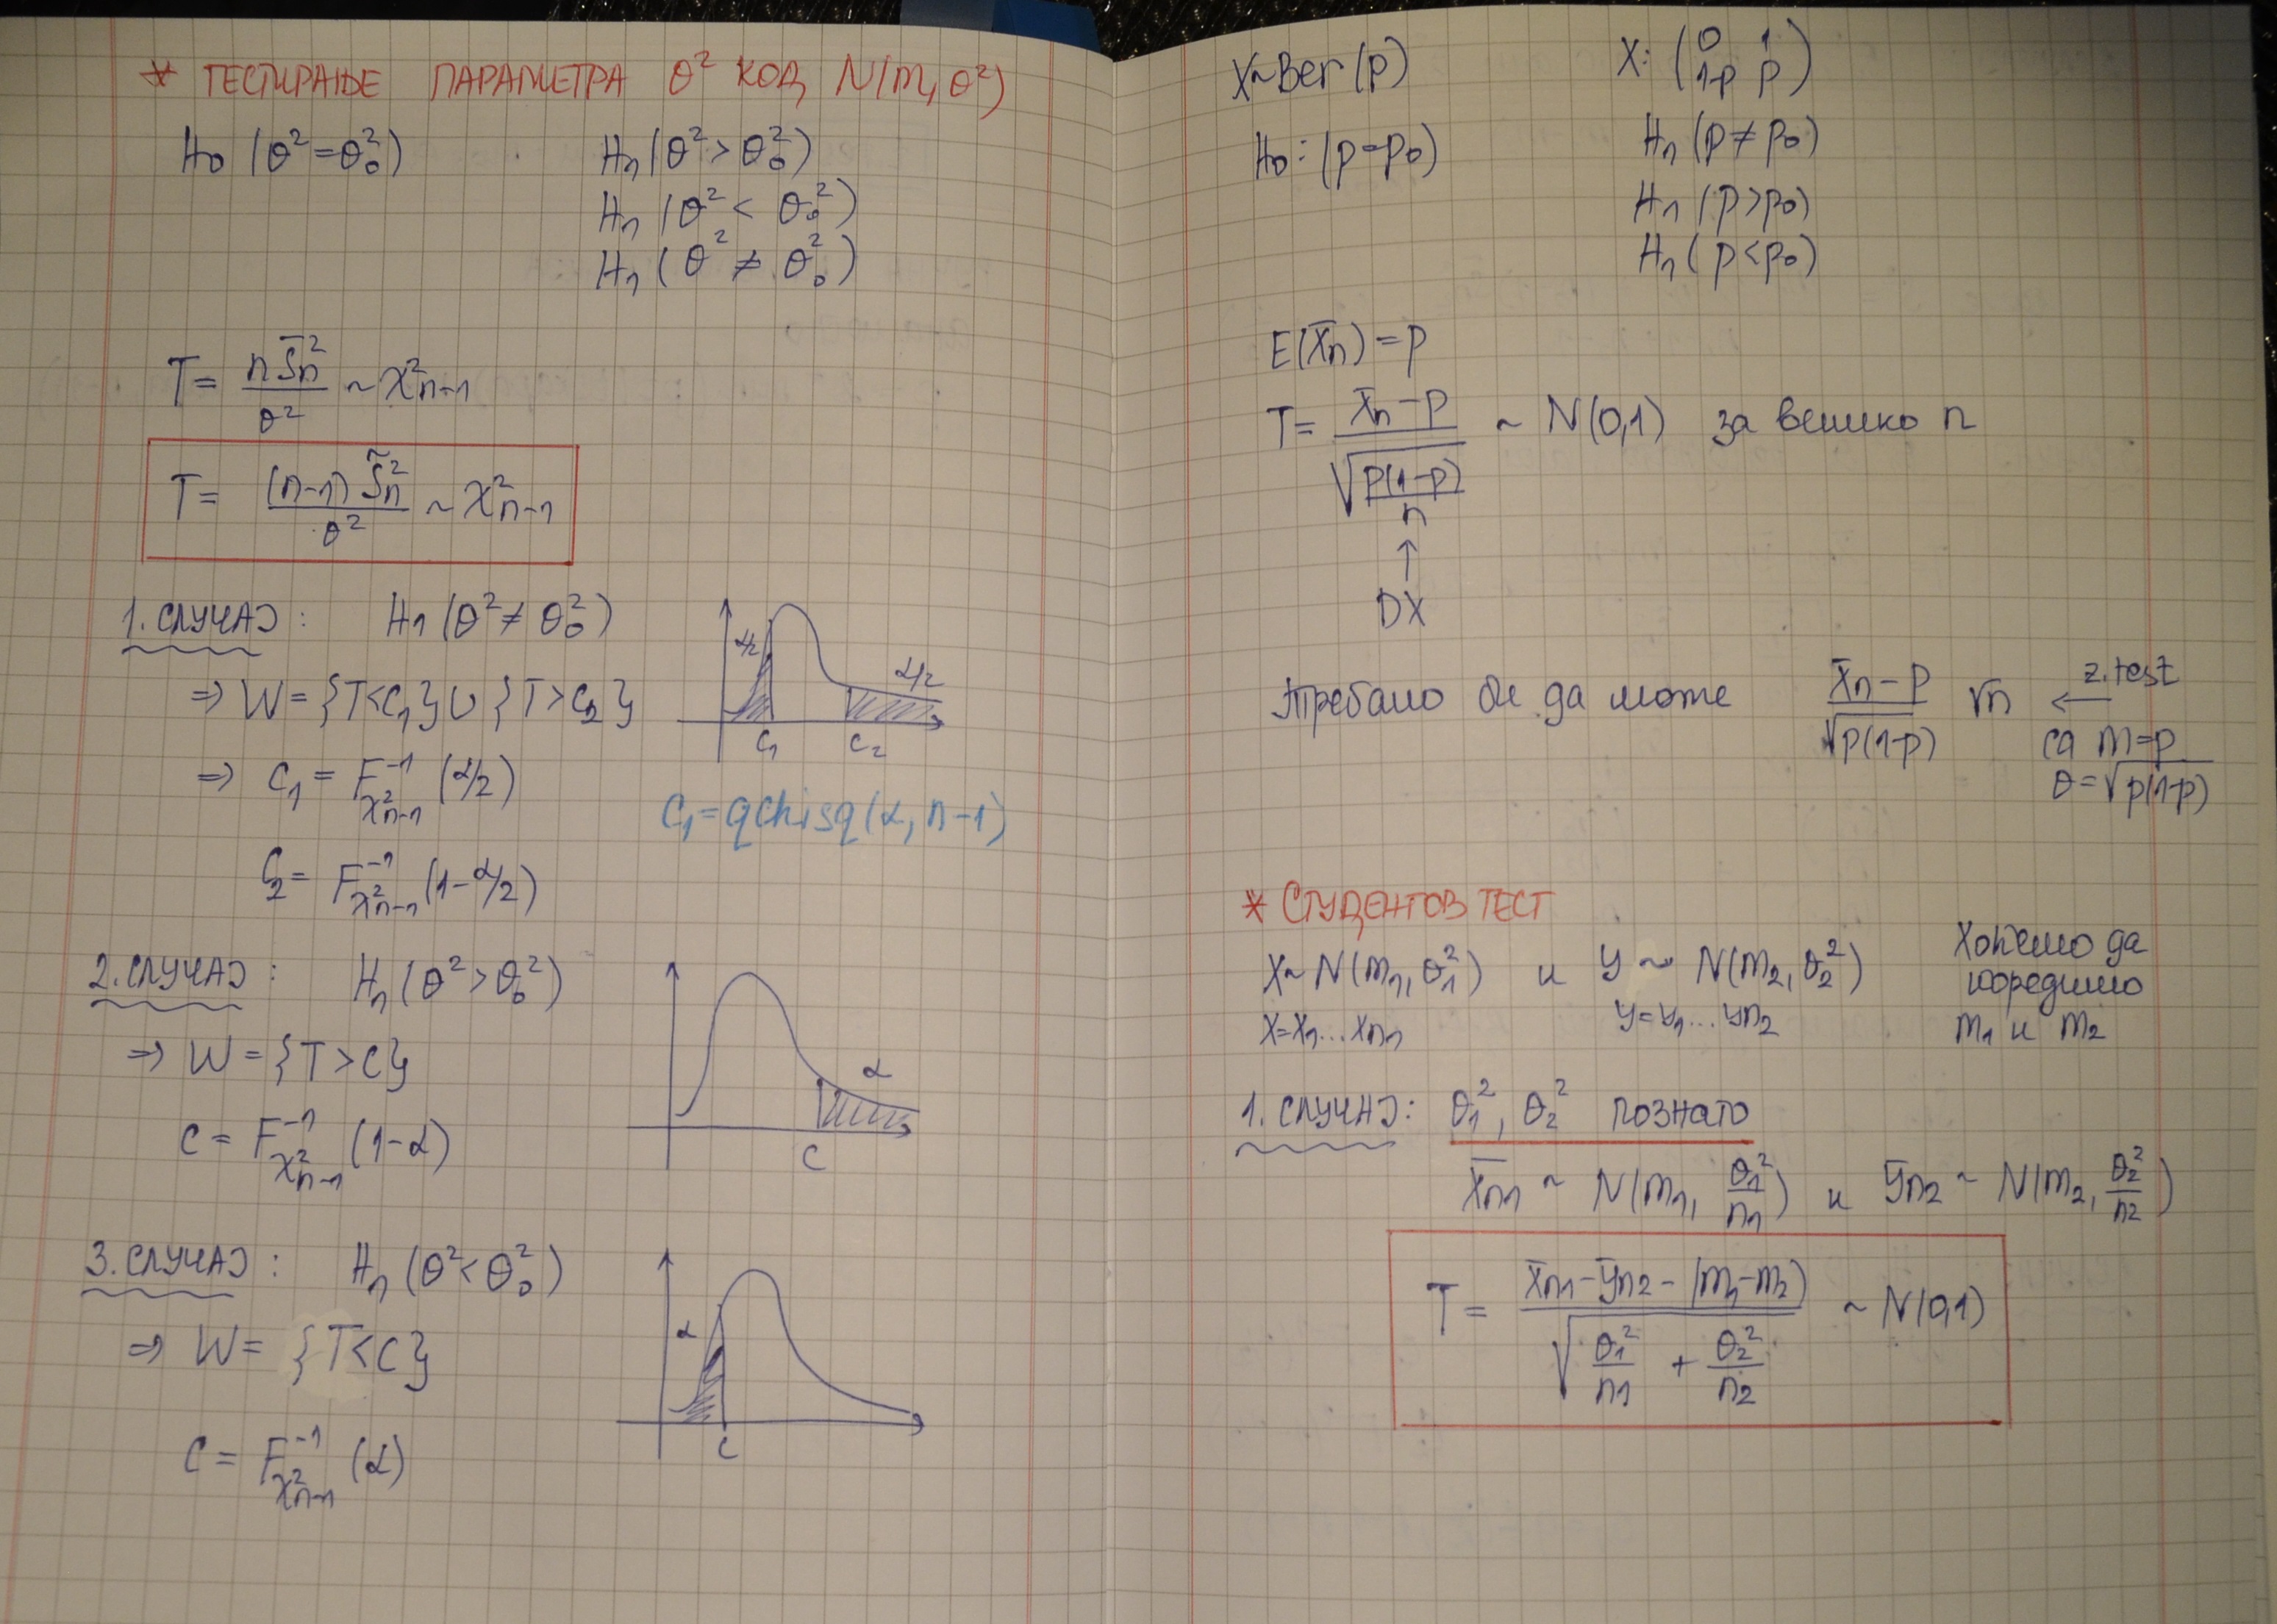 * ТЕСТИРАЊЕ ПАРАМЕТРА θ² КОД N(m, θ²)
H₀ (θ² = θ₀²) H₁ (θ² > θ₀²)
H₁ (θ² < θ₀²)
H₁ (θ² ≠ θ₀²)
T = n S̄n² / θ² ~ χ²n-1
T = (n-1) S̃n² / θ² ~ χ²n-1
1. СЛУЧАЈ: H₁ (θ² ≠ θ₀²)
α/2 α/2
⇒ W = {T < C₁} ∪ {T > C₂}
C₁ C₂
⇒ C₁ = F⁻¹χ²n-1 (α/2)
C₁ = qchisq(α, n-1)
C₂ = F⁻¹χ²n-1 (1-α/2)
2. СЛУЧАЈ: H₁ (θ² > θ₀²)
⇒ W = {T > C}
α
C = F⁻¹χ²n-1 (1-α)
C
3. СЛУЧАЈ: H₁ (θ² < θ₀²)
⇒ W = {T < C}
α
C = F⁻¹χ²n-1 (α)
C
X ~ Ber (p) X: (0 1
1-p p)
H₀: (p = p₀) H₁ (p ≠ p₀)
H₁ (p > p₀)
H₁ (p < p₀)
E(X̄n) = p
T = (X̄n - p) / √(p(1-p)/n) ~ N(0,1) за велико n
↑
DX
Требало би да може (X̄n - p) / √(p(1-p)) √n ← z.test
са m = p
θ = √(p(1-p))
* СТУДЕНТОВ ТЕСТ
X ~ N(m₁, θ₁²) и Y ~ N(m₂, θ₂²) Хоћемо да
поредимо
m₁ и m₂
X = X₁...Xn₁ Y = Y₁...Yn₂
1. СЛУЧАЈ: θ₁², θ₂² познато
X̄n₁ ~ N(m₁, θ₁²/n₁) и Ȳn₂ ~ N(m₂, θ₂²/n₂)
T = (X̄n₁ - Ȳn₂ - (m₁ - m₂)) / √(θ₁²/n₁ + θ₂²/n₂) ~ N(0,1)